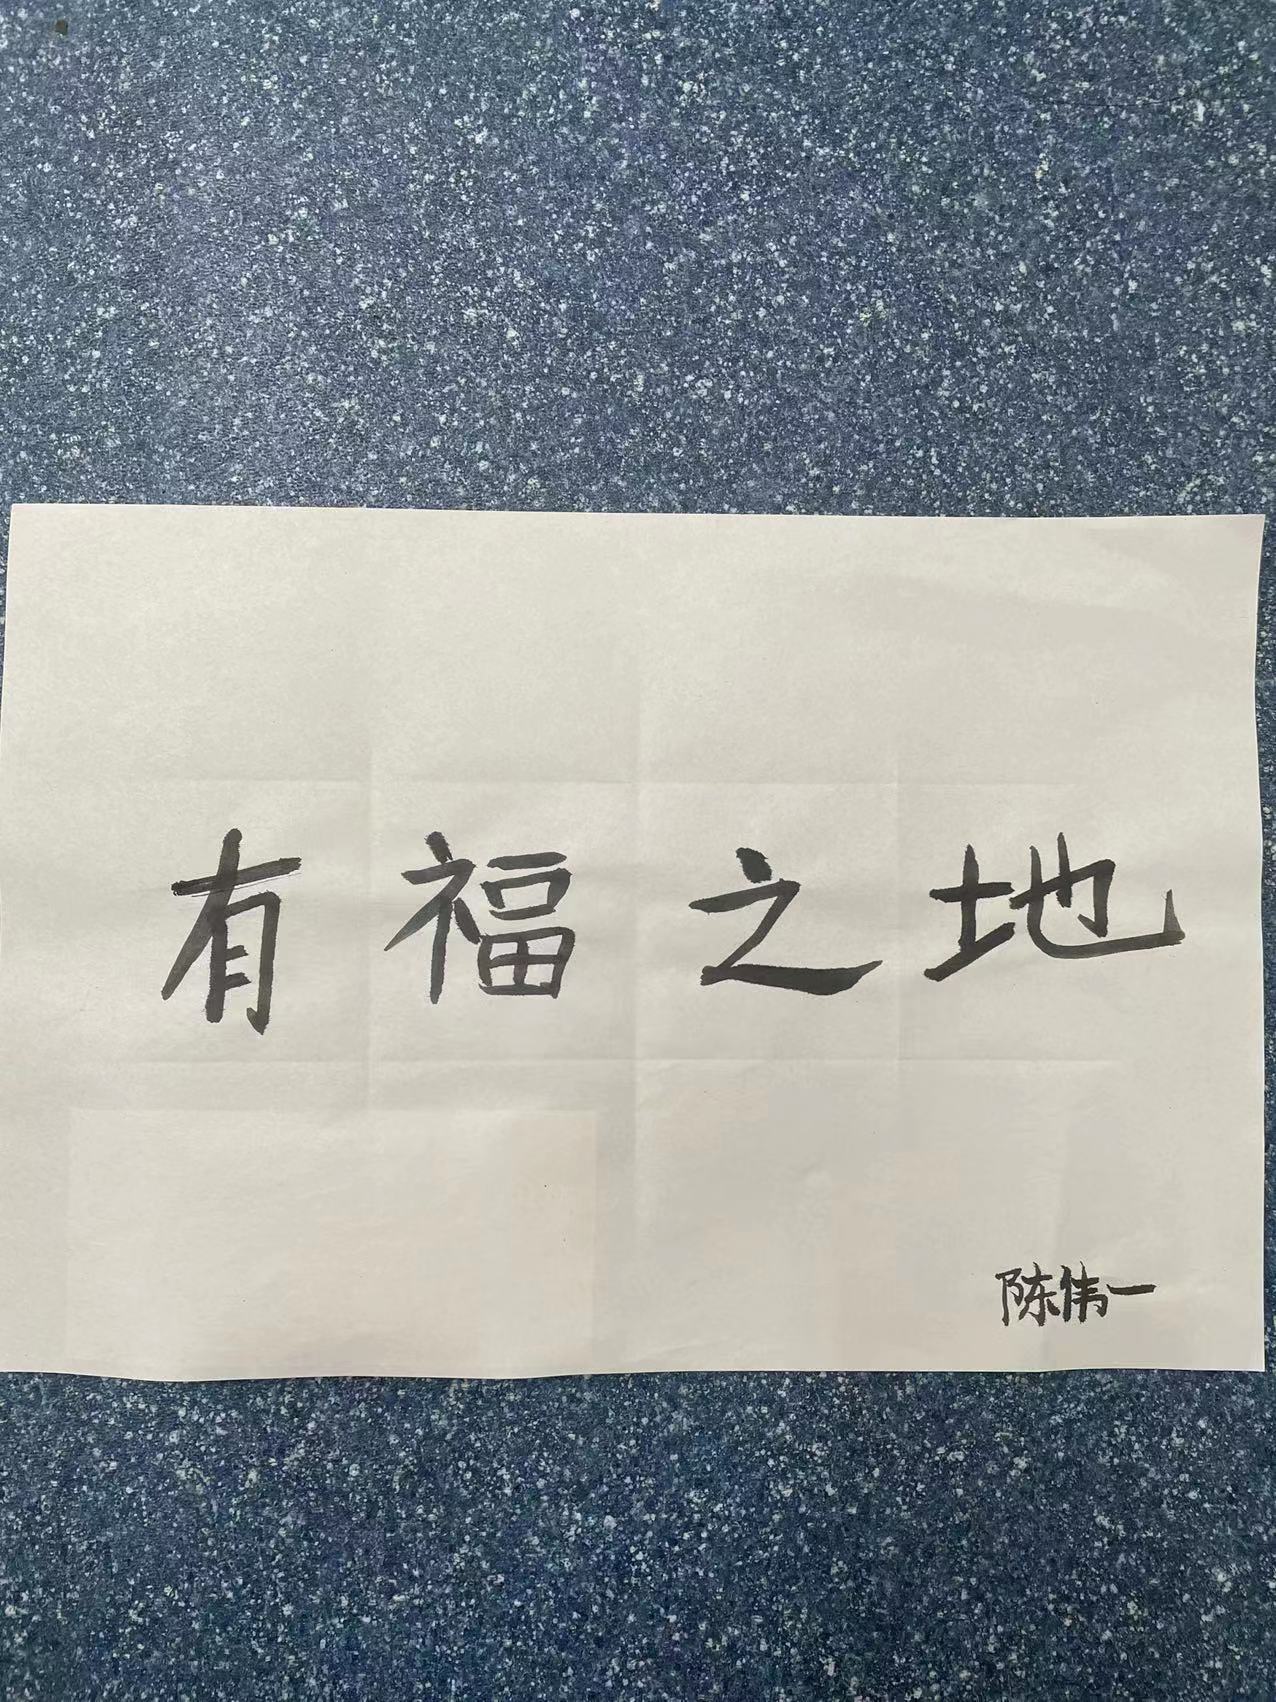 有福之地
陈伟一